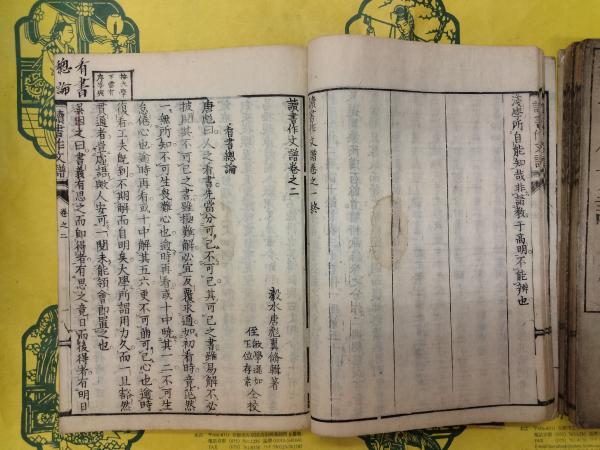 淺學所自能知哉非請敎于高明不能辨也
讀書作文譜卷之一終
讀書作文譜卷之二
瀫水唐彪翼修輯著
姪 正位存素 仝校
看書總論
唐彪曰人之看書先當分可已不可已其可已之書雖易解不必
披閱其不可已之書雖極難解必宜反覆求通如初看時竟茫然
一無所知不可生畏難心也逾時再看或十中曉其一二不可生
怠倦心也逾時再看或十中解其五六更不可萌可已心也逾時
復看工夫旣到不期解而自明矣大學所謂用力久而一旦豁然
貫通者豈虛語歟人安可一閱未能領會卽置之也
吳因之曰書義有思之而卽得者有思之竟日而後得者有明日
讀書作文譜
卷之二
看書
總論